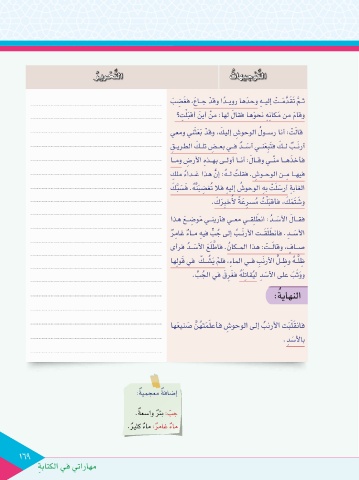 التَّوْجيهاتُ
التَّحْريرُ
ثـمَّ تَقدَّمَـتْ إليـهِ وحدَها رويـدًا وقدْ جـاعَ، فغضِبَ
وقامَ من مَكانِه نحوَها فقالَ لها: مِنْ أينَ أقبَلْتِ؟
قالَـتْ: أنا رسـولُ الوحوشِ إليكَ، وقدْ بَعَثْني ومعي
أرنـبٌ لـكَ فتَبِعَنـي أسـدٌ فـي بعـضِ تلـكَ الطريـقِ
فأخذَهـا منّـي وقـالَ: أنـا أولـى بهـذِهِ الأرضِ ومـا
فيهـا مـن الوحـوشِ، فقلـتُ لـهُ: إنَّ هذا غـداءُ ملكِ
الغابةِ أرسلَتْ به الوحوشُ إليه فلا تُغضِبَنَّهُ، فسَبَّكَ
وشَتَمَكَ، فأقبَلْتُ مُسرعةً لأُخبِرَكَ.
فقـالَ الأسـدُ: انطلِقـي معـي فأرينـي مَوضِـعَ هـذا
الأسـدِ. فانطلَقَـت الأرنـبُ إلى جُـبٍّ فيه مـاءٌ غامرٌ
صـافٍ، وقالَـتْ: هذا المـكانُ. فاطَّلعَ الأسـدُ فرأى
ظلَّـهُ وظـلَّ الأرنبِ فـي الماءِ، فلمْ يَشُـكَّ في قولِها
ووَثَبَ على الأسَدِ ليُقاتِلَهُ فغَرِقَ في الجُبِّ.
النهايةُ:
فانقلَبَت الأرنبُ إلى الوحوشِ فأعلمَتْهُنَّ صَنيعَها
بالأسَدِ.
إضافةٌ معجميةٌ:
جبّ: بئرٌ واسعةٌ.
ماءٌ غامرٌ: ماءٌ كثيرٌ.
١٦٩
مهاراتي في الكتابة